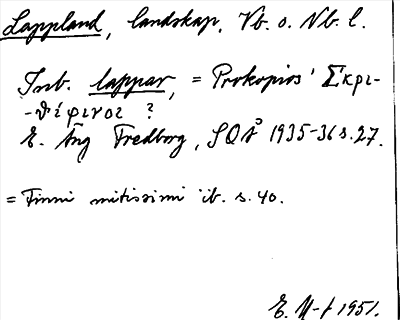 Lappland, landskap, Vb. o. Nb. l.
Inb. lappar, = Prokopios' Σκρι-
-θίφινοι ?
E. Äng Fredborg, SOÅ 1935-36 s. 27.
= Finni mitissimi ib. s. 40.
E. 1951.